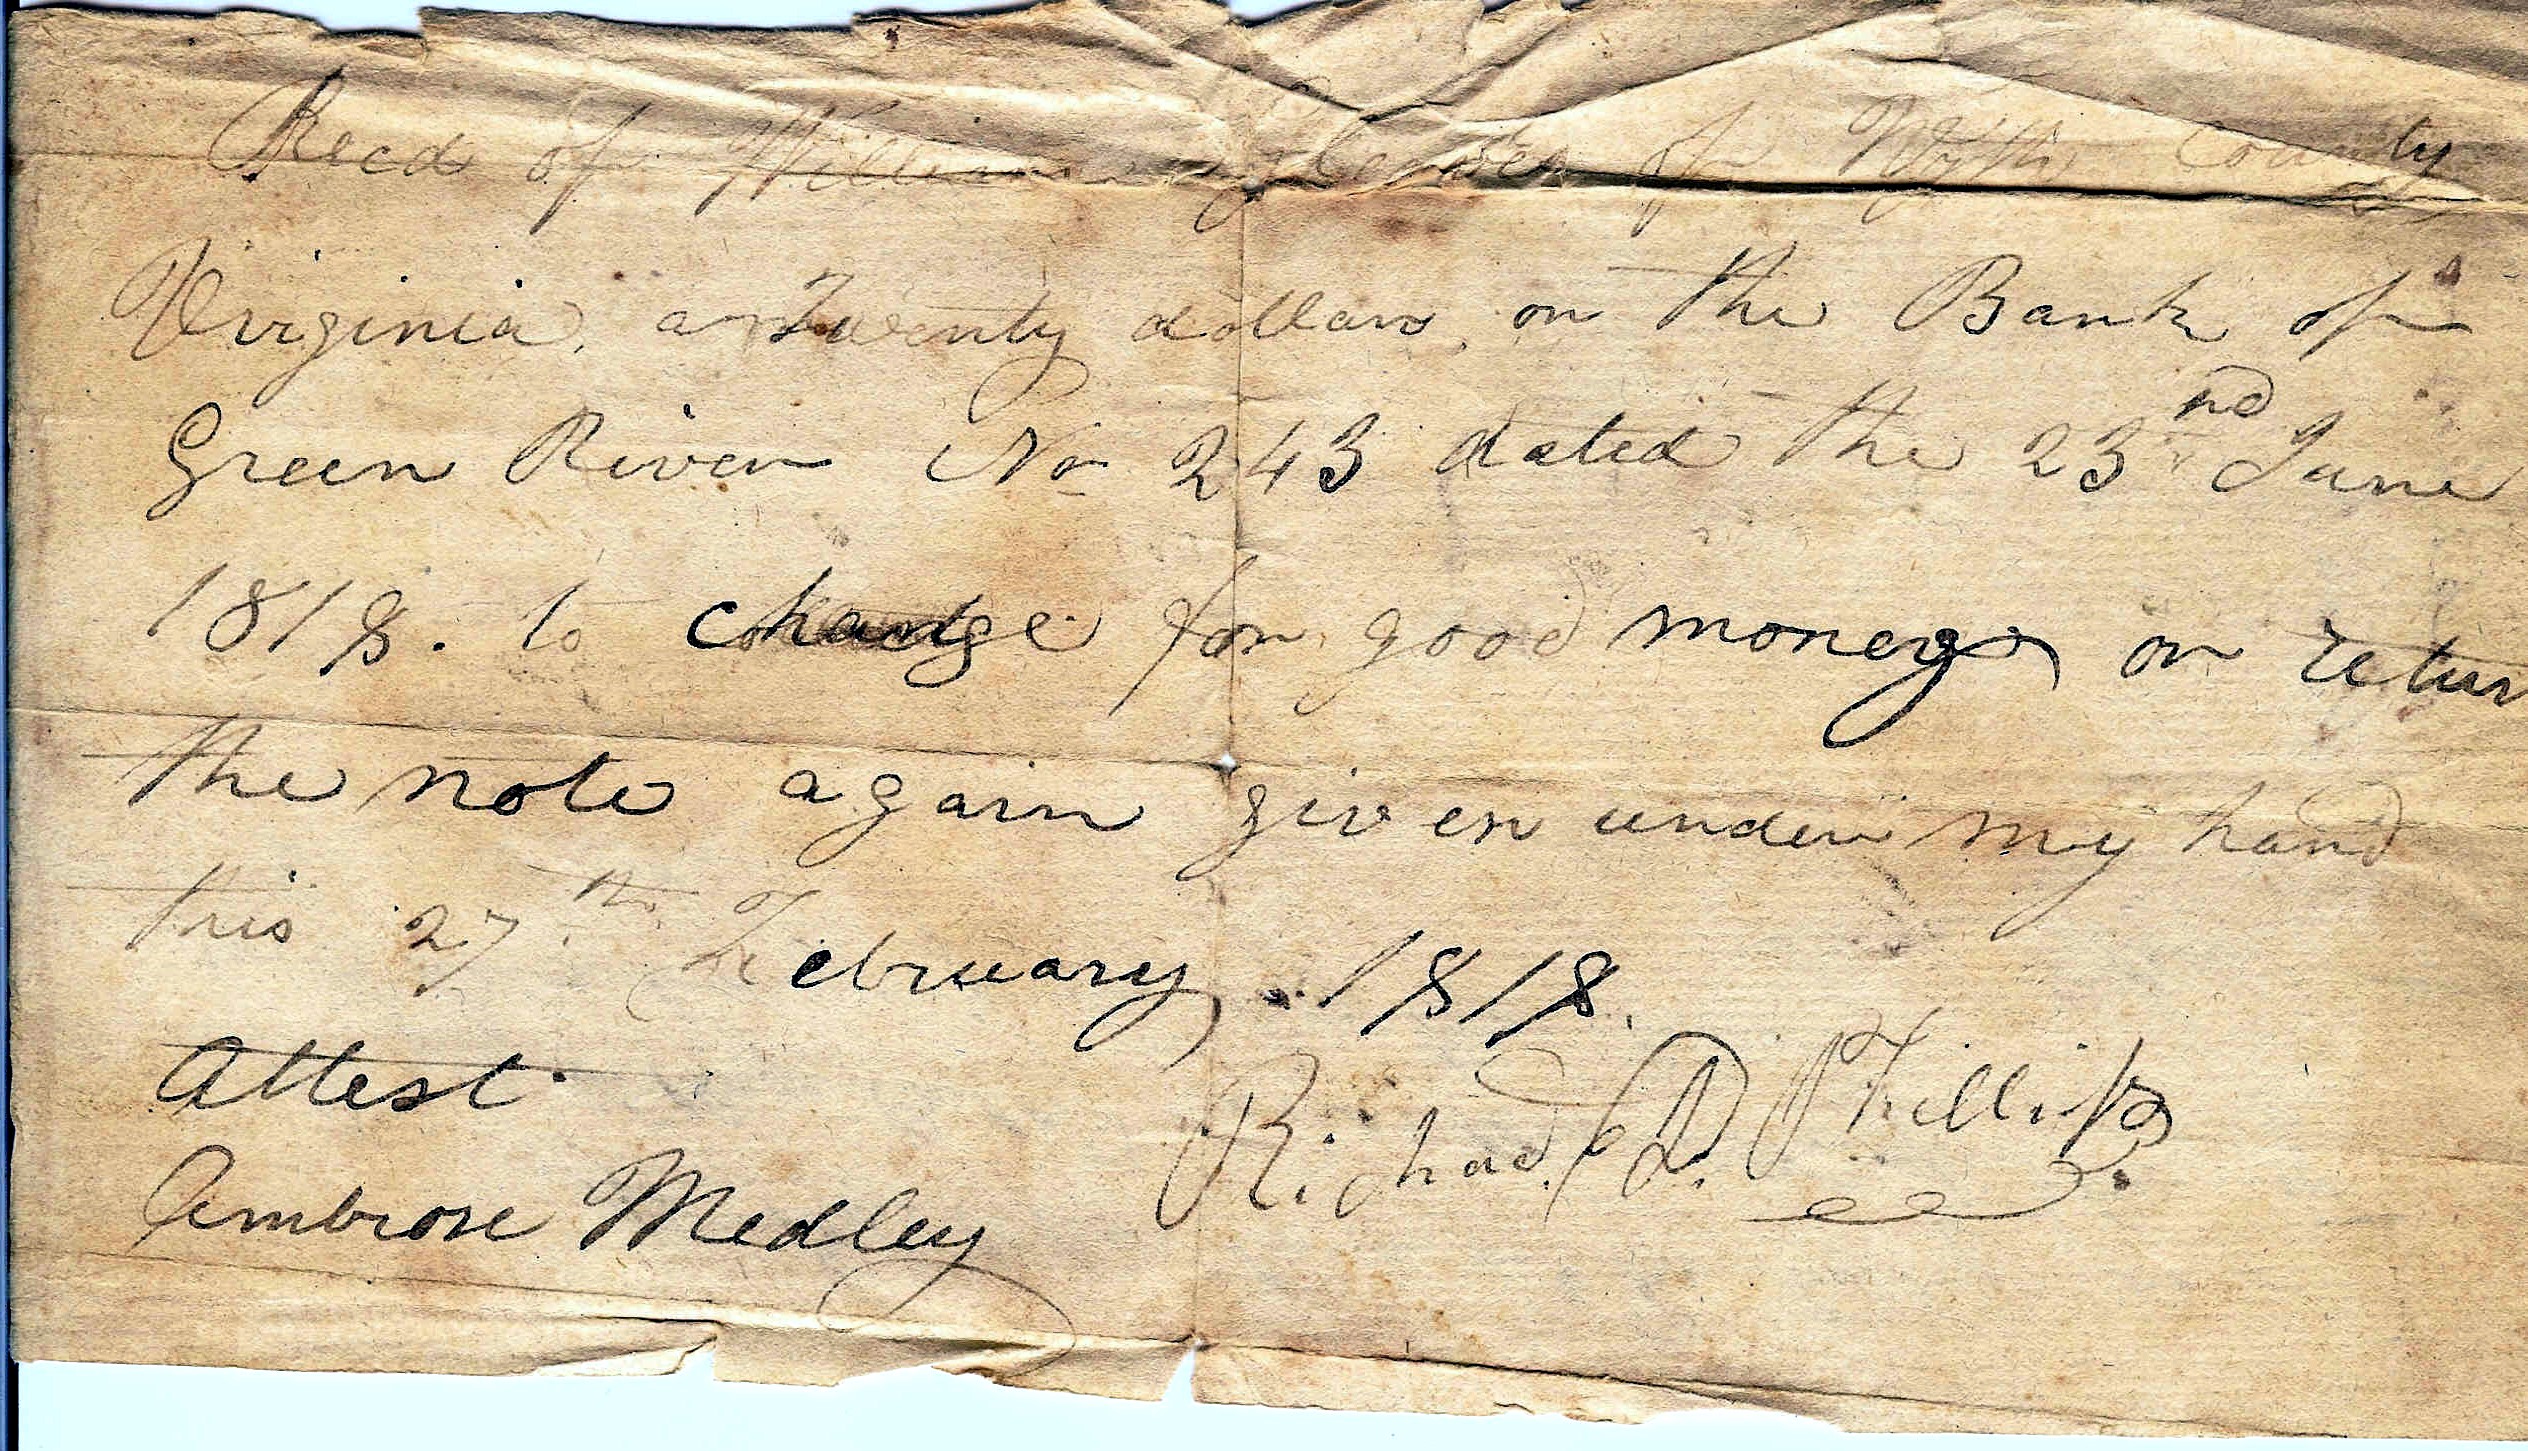 Recd of William of Wythe County
Virginia, a Twenty dollars on the Bank of
Green River No 243 dated the 23nd June
1818. to change for good money or return
the note again given under my hand
this 27th February . 1818.
Attest.
Richad D. Phillips
Ambrose Medley